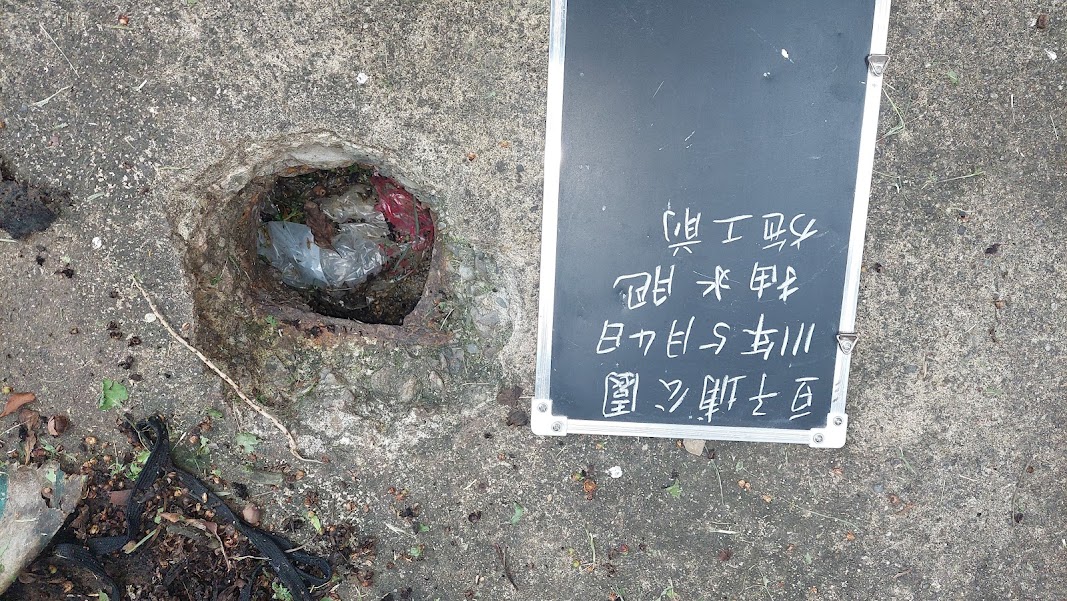 豆子埔公園
111年5月4日
抽水肥
施工前